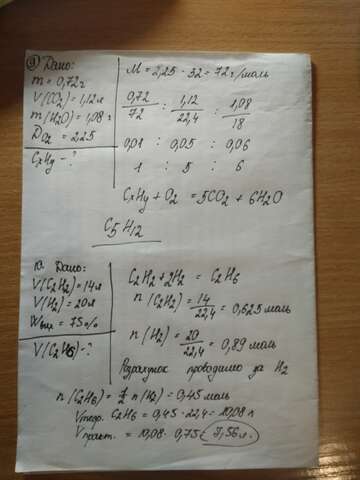 9) Дано:
m = 0,72г
V(CO2) = 1,12л
m(H2O) = 1,08г
DO2 = 2,25
CxHy - ?
M = 2,25 · 32 = 72 г/моль
0,72/72 : 1,12/22,4 : 1,08/18
0,01 : 0,05 : 0,06
1 : 5 : 6
CxHy + O2 = 5CO2 + 6H2O
C5H12
10. Дано:
V(C2H2) = 14л
V(H2) = 20л
Wвих = 75%
V(C2H6) - ?
C2H2 + 2H2 = C2H6
n(C2H2) = 14/22,4 = 0,625 моль
n(H2) = 20/22,4 = 0,89 моль
Розрахунок проводимо за H2
n(C2H6) = 1/2 n(H2) = 0,45 моль
Vтеор. C2H6 = 0,45 · 22,4 = 10,08 л
Vпракт. = 10,08 · 0,75 = 7,56 л.